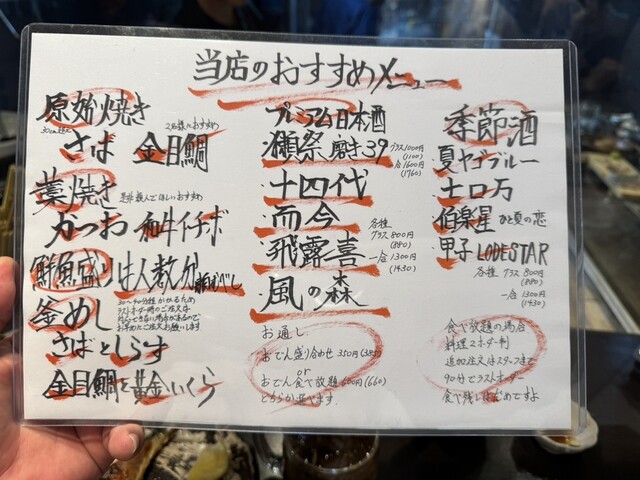 当店のおすすめメニュー
原始焼き
2名様におすすめ
さば 金目鯛
藁焼き 是非飲んでほしいおすすめ
かつお 和牛イチボ
鮮魚盛りは人数分
釜めし
30〜40分程かかるため
ラストオーダー時のご注文は
お早めにご注文お願いします
さばとしらす
金目鯛と黄金いくら
プレミアム日本酒
・獺祭 磨き39 グラス1000円
(1100)
一合1600円
(1760)
・十四代
・而今
・飛露喜
・風の森
各種
グラス800円
(880)
一合1300円
(1430)
お通し
おでん盛り合わせ 350円(385)
or
おでん食べ放題 600円(660)
どちらか選べます。
季節酒
夏ヤゴブルー
土田万
伯楽星 ひと夏の恋
甲子 LODESTAR
各種 グラス800円
(880)
一合1300円
(1430)
食べ放題の場合
料理2オーダー制
追加注文はスタートまで
90分でラストオーダー
食べ残しはだめですよ